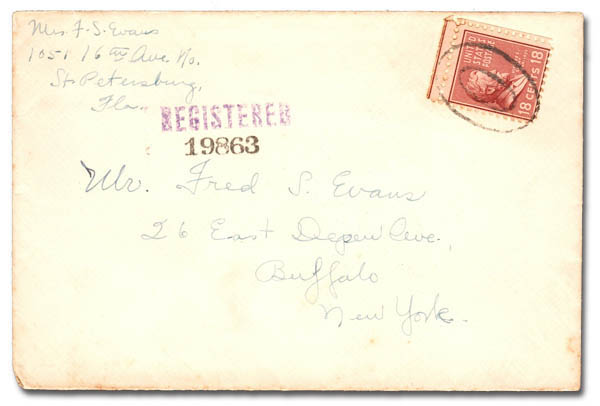 Mrs. F. S. Evans
1051 16th Ave. No.
St. Petersburg,
Fla.
UNITED
STATES
POSTAGE
18 CENTS 18
REGISTERED
19863
Mr. Fred S. Evans
26 East Depew Ave.,
Buffalo
New York.